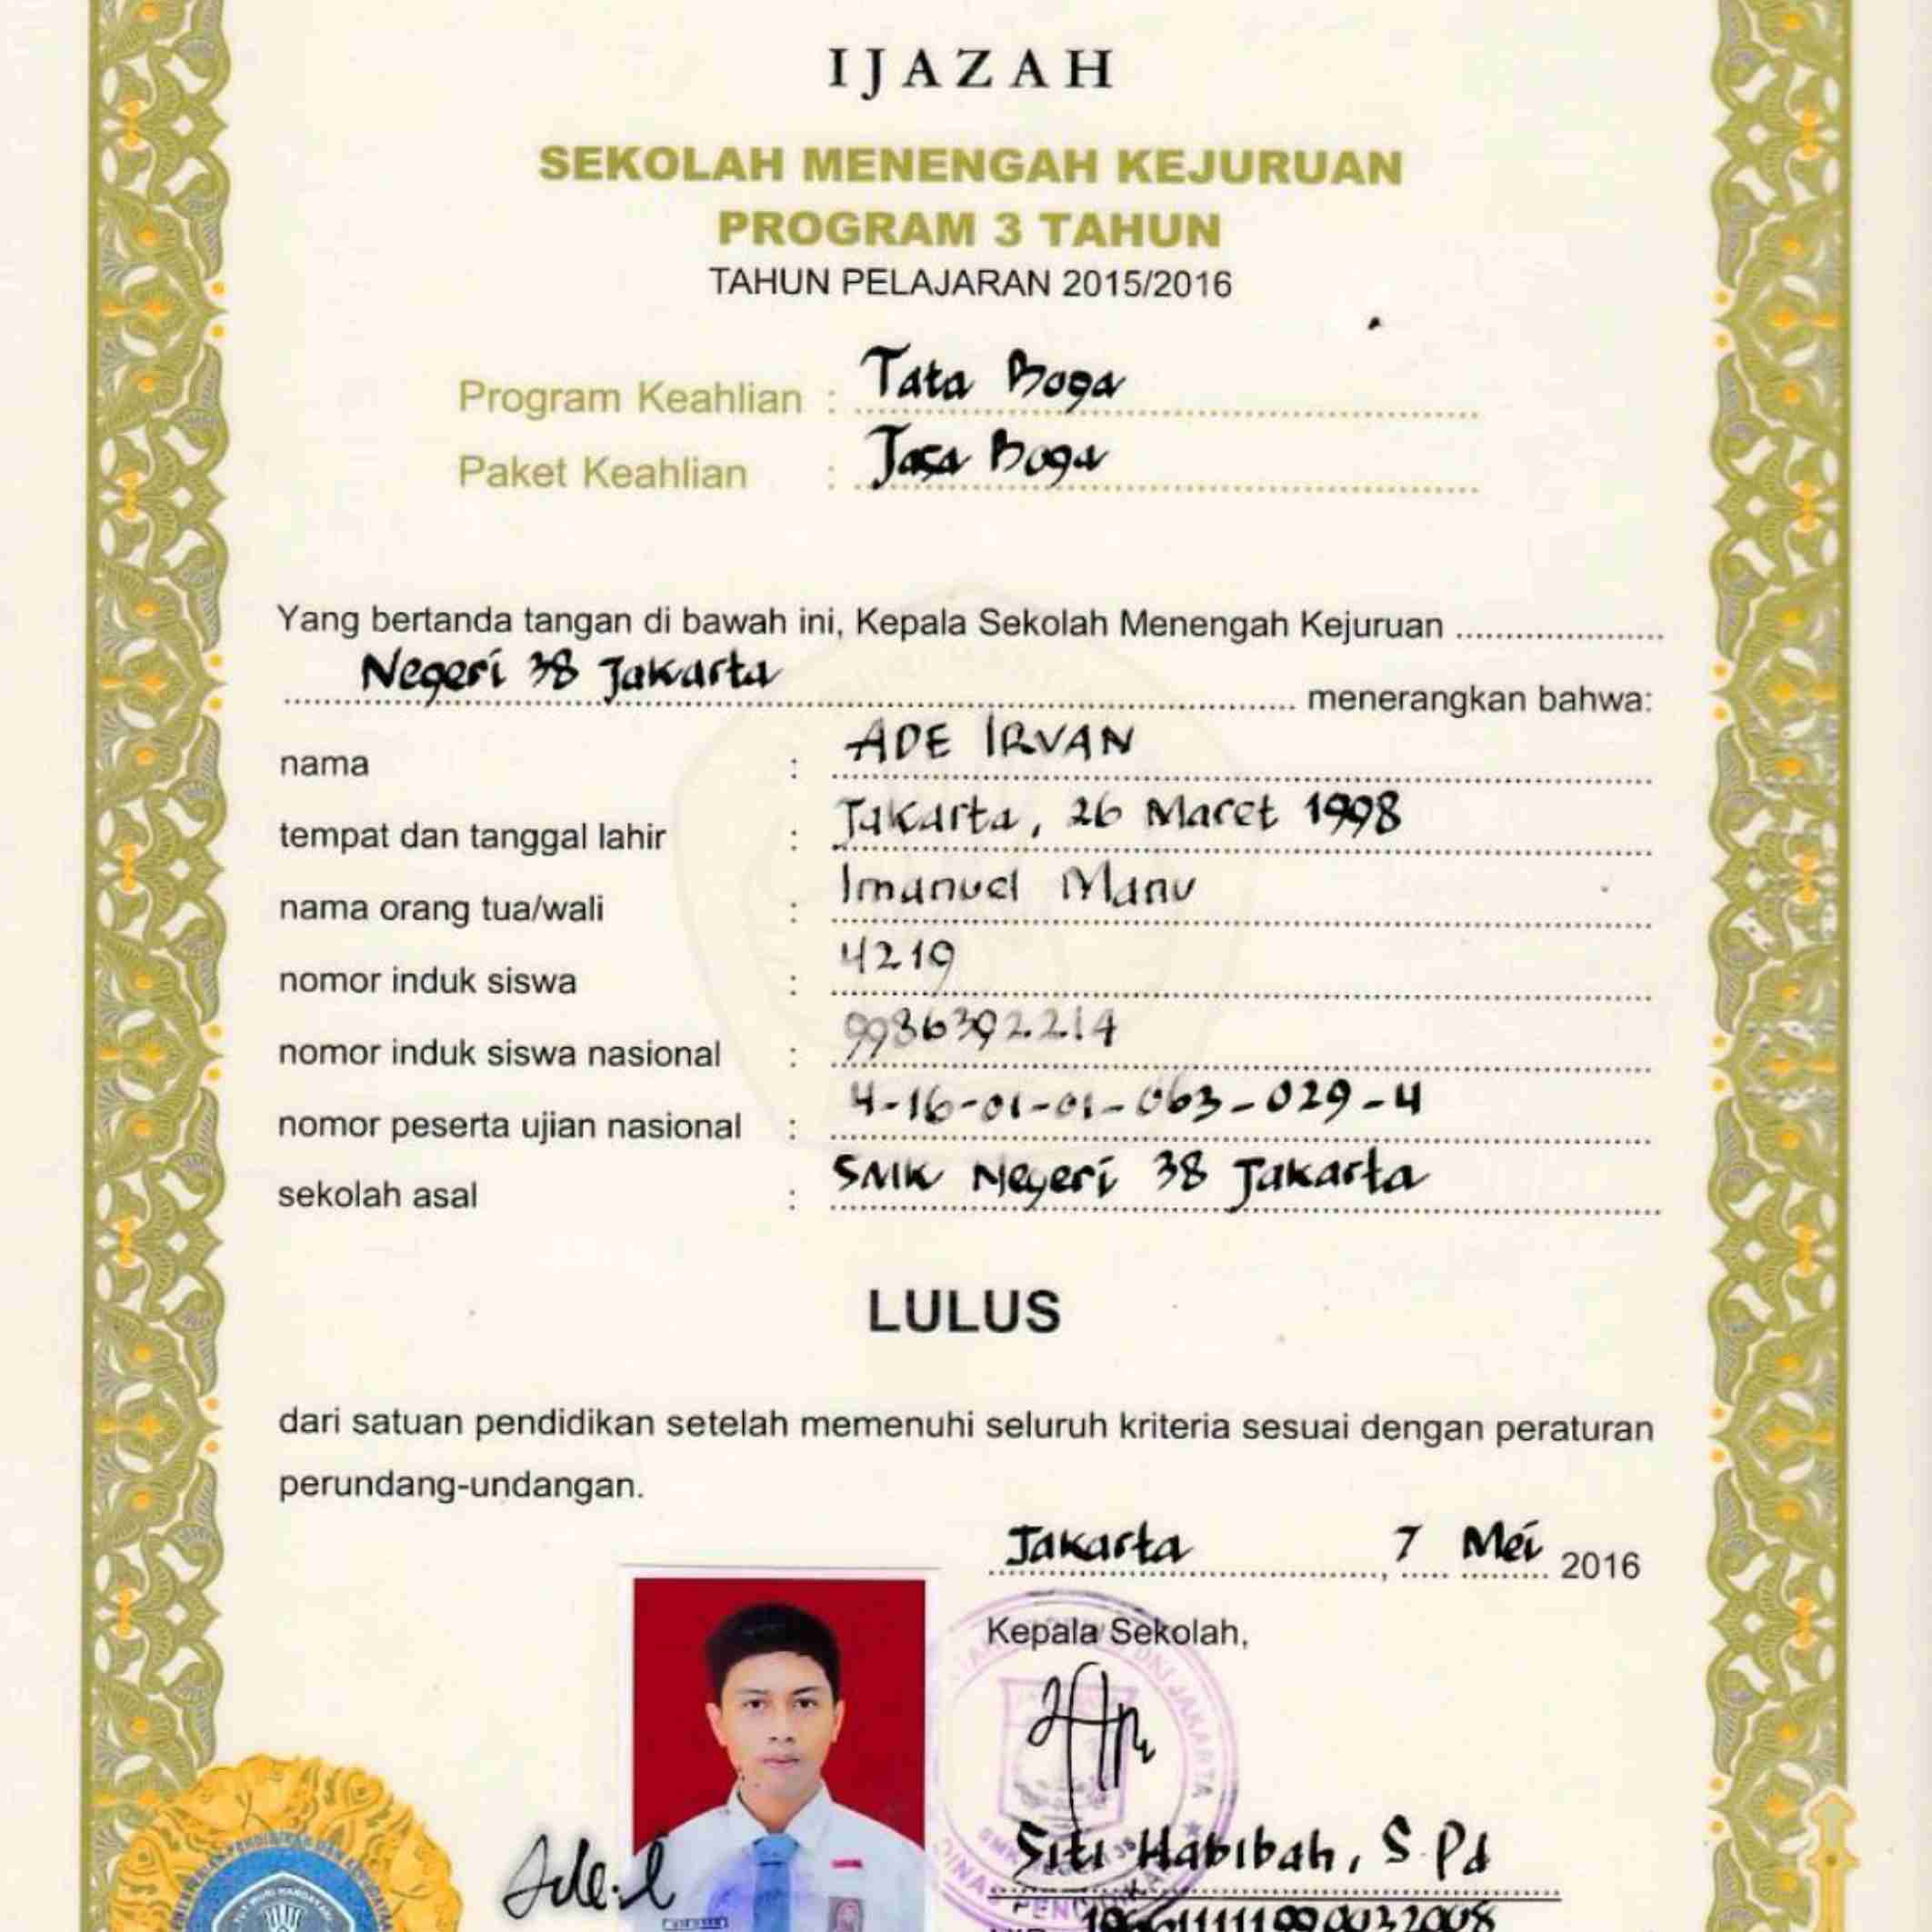 IJAZAH
SEKOLAH MENENGAH KEJURUAN
PROGRAM 3 TAHUN
TAHUN PELAJARAN 2015/2016
Program Keahlian : Tata Boga
Paket Keahlian : Jasa Boga
Yang bertanda tangan di bawah ini, Kepala Sekolah Menengah Kejuruan
Negeri 38 Jakarta menerangkan bahwa:
nama : ADE IRVAN
tempat dan tanggal lahir : Jakarta, 26 Maret 1998
nama orang tua/wali : Imanuel Manu
nomor induk siswa : 4219
nomor induk siswa nasional : 9986392214
nomor peserta ujian nasional : 4-16-01-01-063-029-4
sekolah asal : SMK Negeri 38 Jakarta
LULUS
dari satuan pendidikan setelah memenuhi seluruh kriteria sesuai dengan peraturan
perundang-undangan.
Jakarta, 7 Mei 2016
Kepala Sekolah,
DKI JAKARTA
Siti Habibah, S.Pd
DINAS PENDIDIKAN